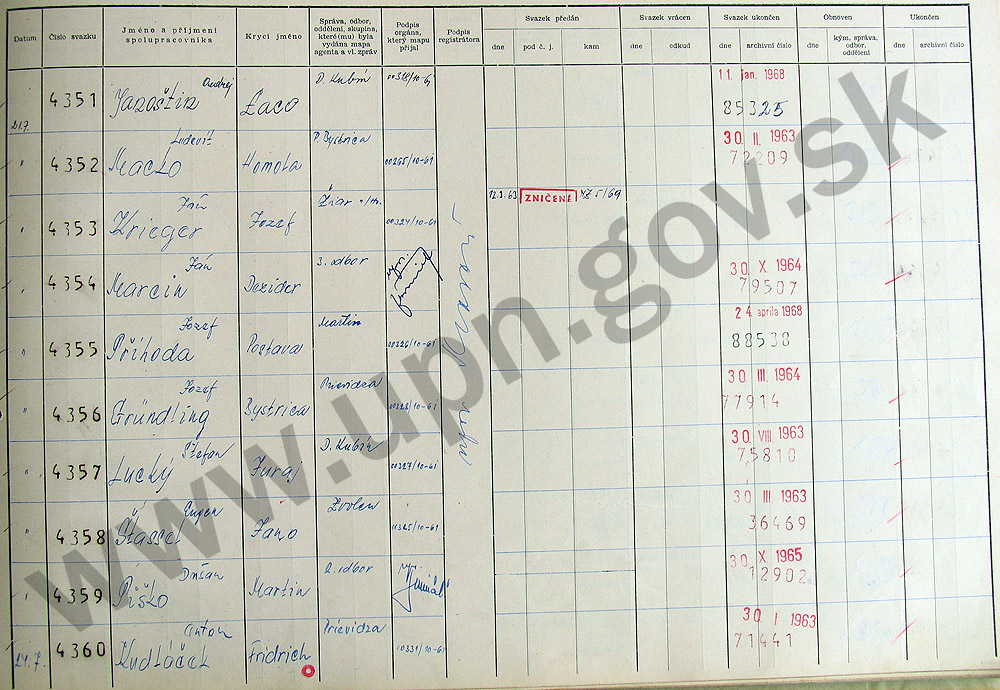 Datum
Číslo svazku
Jméno a příjmení spolupracovníka
Krycí jméno
Správa, odbor, oddělení, skupina, které(mu) byla vydána mapa agenta a vl. zpráv
Podpis orgána, který mapu přijal
Podpis registrátora
Svazek předán
dne
pod č. j.
kam
Svazek vrácen
dne
odkud
Svazek ukončen
dne
archivní číslo
Obnoven
dne
kým, správa, odbor, oddělení
Ukončen
dne
archivní číslo
21.7. 4351 Ondrej Laco D. Kubín 11. jan. 1968 85325
" 4352 Ludevít Maclo Homola P. Bystrica 00265/10-61 30 II. 1963 72209
" 4353 Ján Krieger Jozef Žiar n/Hr. 00324/10-61 12.3.63 ZNIČENÉ
" 4354 Ján Marcin Dezider 3. odbor 30 X. 1964 79507
" 4355 Jozef Příhoda Postava Martin 00326/10-61 24 aprila 1968 88538
" 4356 Jozef Gründling Bystrica Prievidza 00328/10-61 30 III. 1964 77914
" 4357 Štefan Lucký Juraj D. Kubín 00327/10-61 30 VIII 1963 75810
" 4358 Eugen Jano Zvolen 00325/10-61 30 III. 1963 36469
" 4359 Dušan Pišto Martin 2. odbor 30 X. 1965 12902
24.7. 4360 Anton Kudláček Fridrich Prievidza 30 I 1963 71441
www.upn.gov.sk